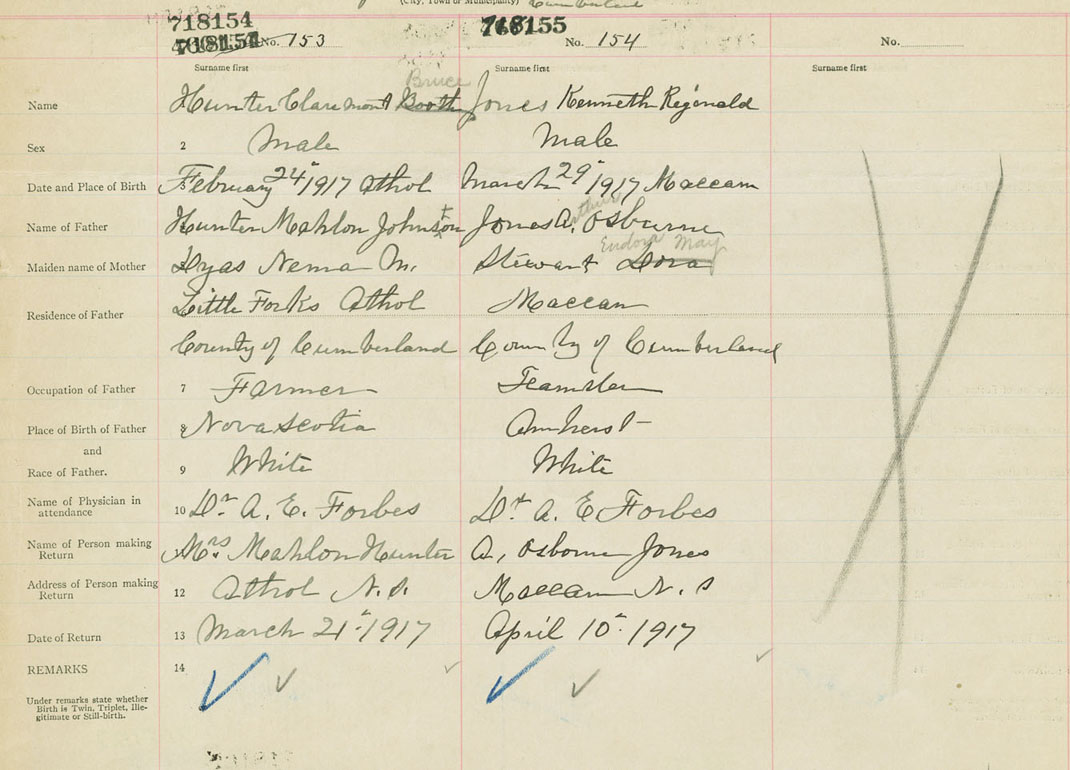 (City, Town or Municipality) Cumberland
718154 718155
718154 No. 153 No. 154 No.
Surname first Surname first Surname first
Bruce
Name Hunter Claremont Booth Jones Kenneth Reginald
Sex 2 Male Male
Date and Place of Birth 3 February 24" 1917 Athol March 29" 1917 Maccan
Arthur
Name of Father Hunter Mahlon Johnston Jones A. Osburne
Eudora May
Maiden name of Mother Dyas Nema M. Stewart Dora
Residence of Father Little Forks Athol Maccan
County of Cumberland County of Cumberland
Occupation of Father 7 Farmer Teamster
Place of Birth of Father 8 Nova Scotia Amherst
and
Race of Father. 9 White White
Name of Physician in attendance 10 Dr. A. E. Forbes Dr. A. E Forbes
Name of Person making Return Mrs. Mahlon Hunter A, Osborne Jones
Address of Person making Return 12 Athol N.S. Maccan N.S
Date of Return 13 March 21" 1917 April 10" 1917
REMARKS 14
Under remarks state whether
Birth is Twin, Triplet, Ille-
gitimate or Still-birth.